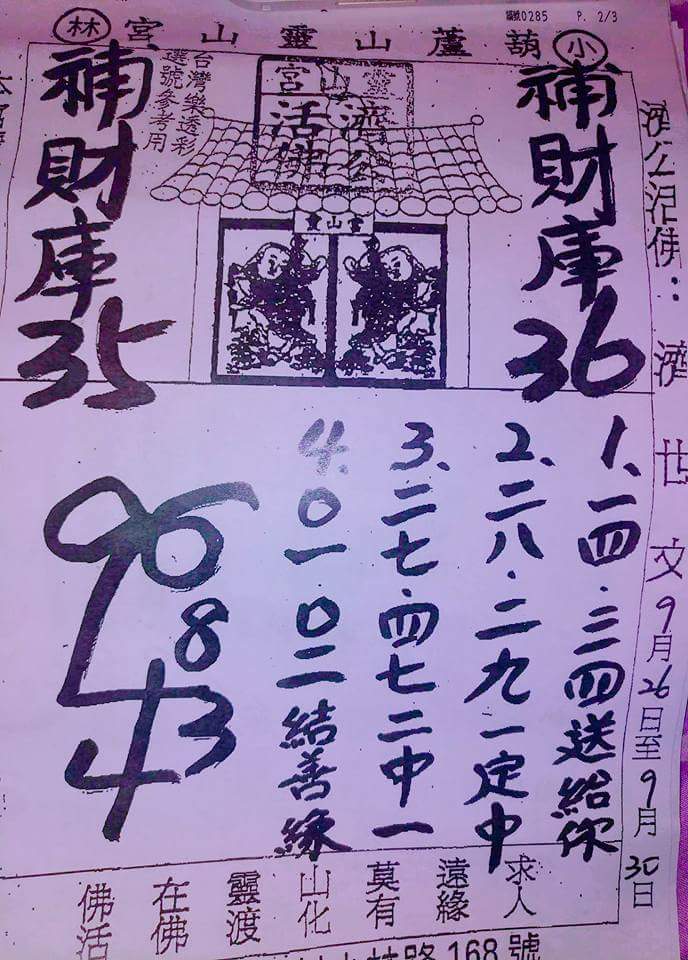 編號0285 P. 2/3
小葫蘆山靈山宮林
台灣樂透彩
選號參考用
靈山宮
濟公活佛
靈山宮
補財庫36
補財庫35
濟公活佛：濟世文9月26日至9月30日
1、一四．三四送給你
2、二八．二九一定中
3、二七．四七二中一
4、0一．0二結善緣
96
8
43
求人
遠緣
莫有
山化
靈渡
在佛
佛活
路168號